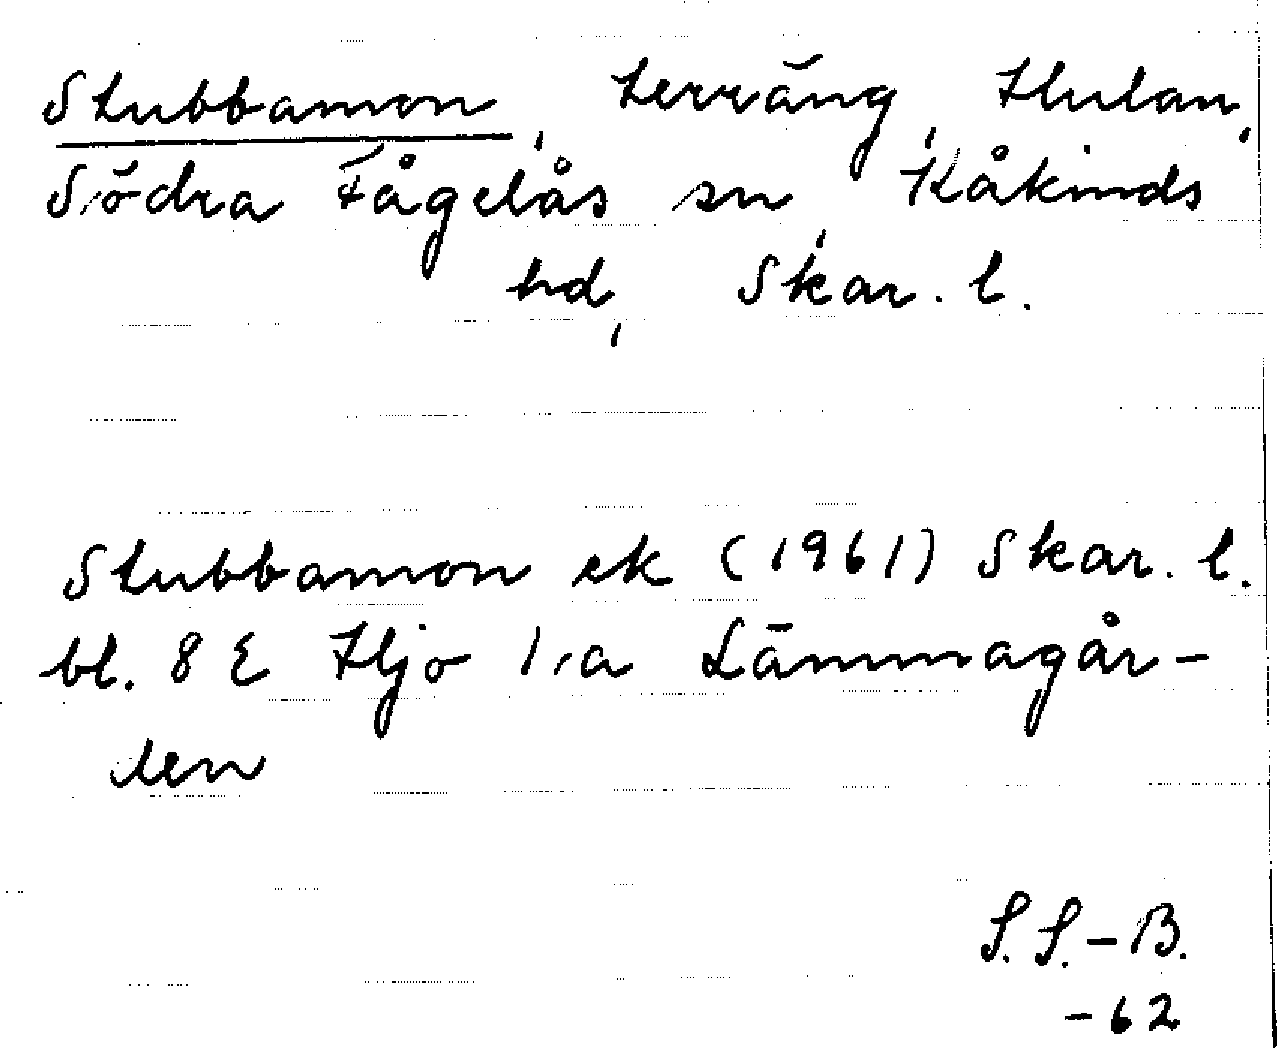 Stubbamon, terräng, Hulan,
Södra Fågelås sn, Kåkinds
hd, Skar. l.
Stubbamon ek (1961) Skar. l.
bl. 8 E Hjo 1, a Lämmagår-
den
S. S.-B.
-62